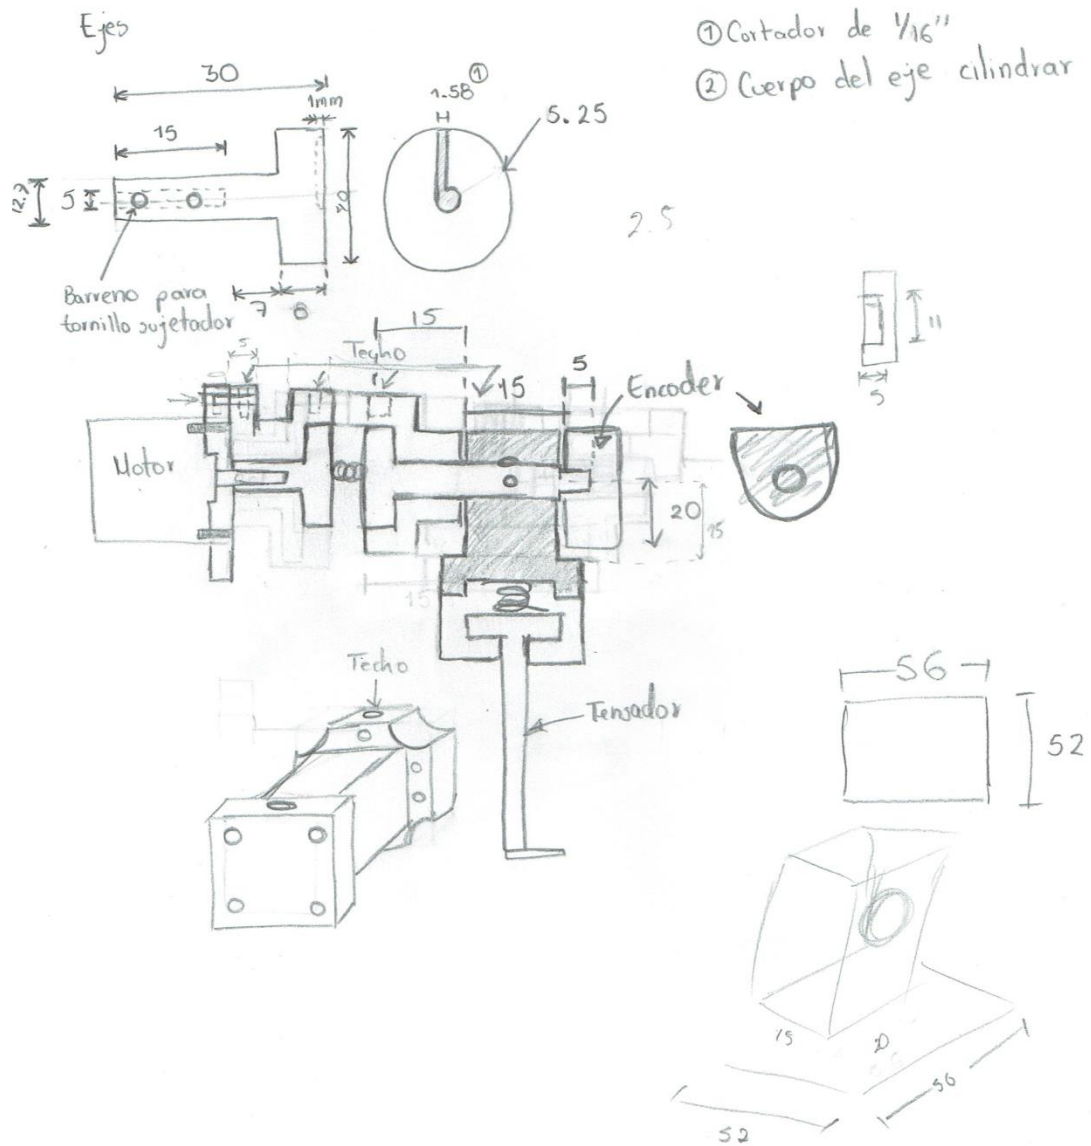 Ejes
① Cortador de 1/16"
② Cuerpo del eje cilindrar
30
1mm
1.58 ①
5.25
15
12.7
5
Barreno para
tornillo sujetador
7
8
2.5
11
5
15
5
Techo
15
5
Encoder
Motor
20
15
Techo
Tensador
56
52
15
20
56
52